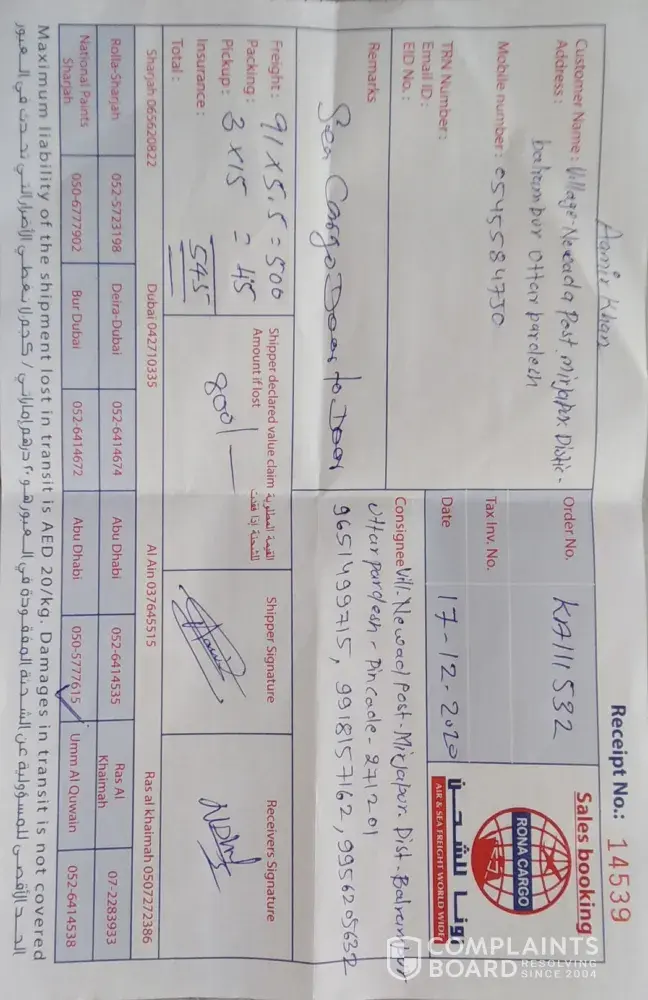 Receipt No.: 14539
Sales booking
RONA CARGO
رونا للشحن
AIR & SEA FREIGHT WORLD WIDE
Aamir Khan
Customer Name : Village-Newada Post. mirjapur Distic-
Address : balrampur Uttar pardesh
Mobile number : 0545584750
TRN Number :
Email ID :
EID No. :
Order No. KA111532
Tax Inv. No.
Date 17-12-2020
Remarks
Sea Cargo Door to Door
Consignee Vill-Newad Post-Mirjapur. Dist-Balrampur
Uttar pardesh - Pincode-271201
9651499715, 9918157162, 9956205632
Freight : 91 x 5.5 = 500
Packing :
Pickup : 3 x 15 = 45
Insurance :
Total : 545
Shipper declared value claim
Amount if lost
القيمة المطلوبة
للشحنة إذا فقدت
800/-
Shipper Signature
Receivers Signature
Sharjah 065620822 Dubai 042710335 Al Ain 037645515 Ras al khaimah 0507272386
Rolla-Sharjah 052-5723198 Deira-Dubai 052-6414674 Abu Dhabi 052-6414535 Ras Al Khaimah 07-2283933
National Paints Sharjah 050-6777902 Bur Dubai 052-6414672 Abu Dhabi 050-5777615 Umm Al Quwain 052-6414538
Maximum liability of the shipment lost in transit is AED 20/kg. Damages in transit is not covered
الحد الأقصى للمسؤولية عن الشحنة المفقودة في العبور هو ٢٠ درهم إماراتي / كجم ولا يغطي الأضرار التي تحدث في العبور
COMPLAINTS
BOARD RESOLVING
SINCE 2004